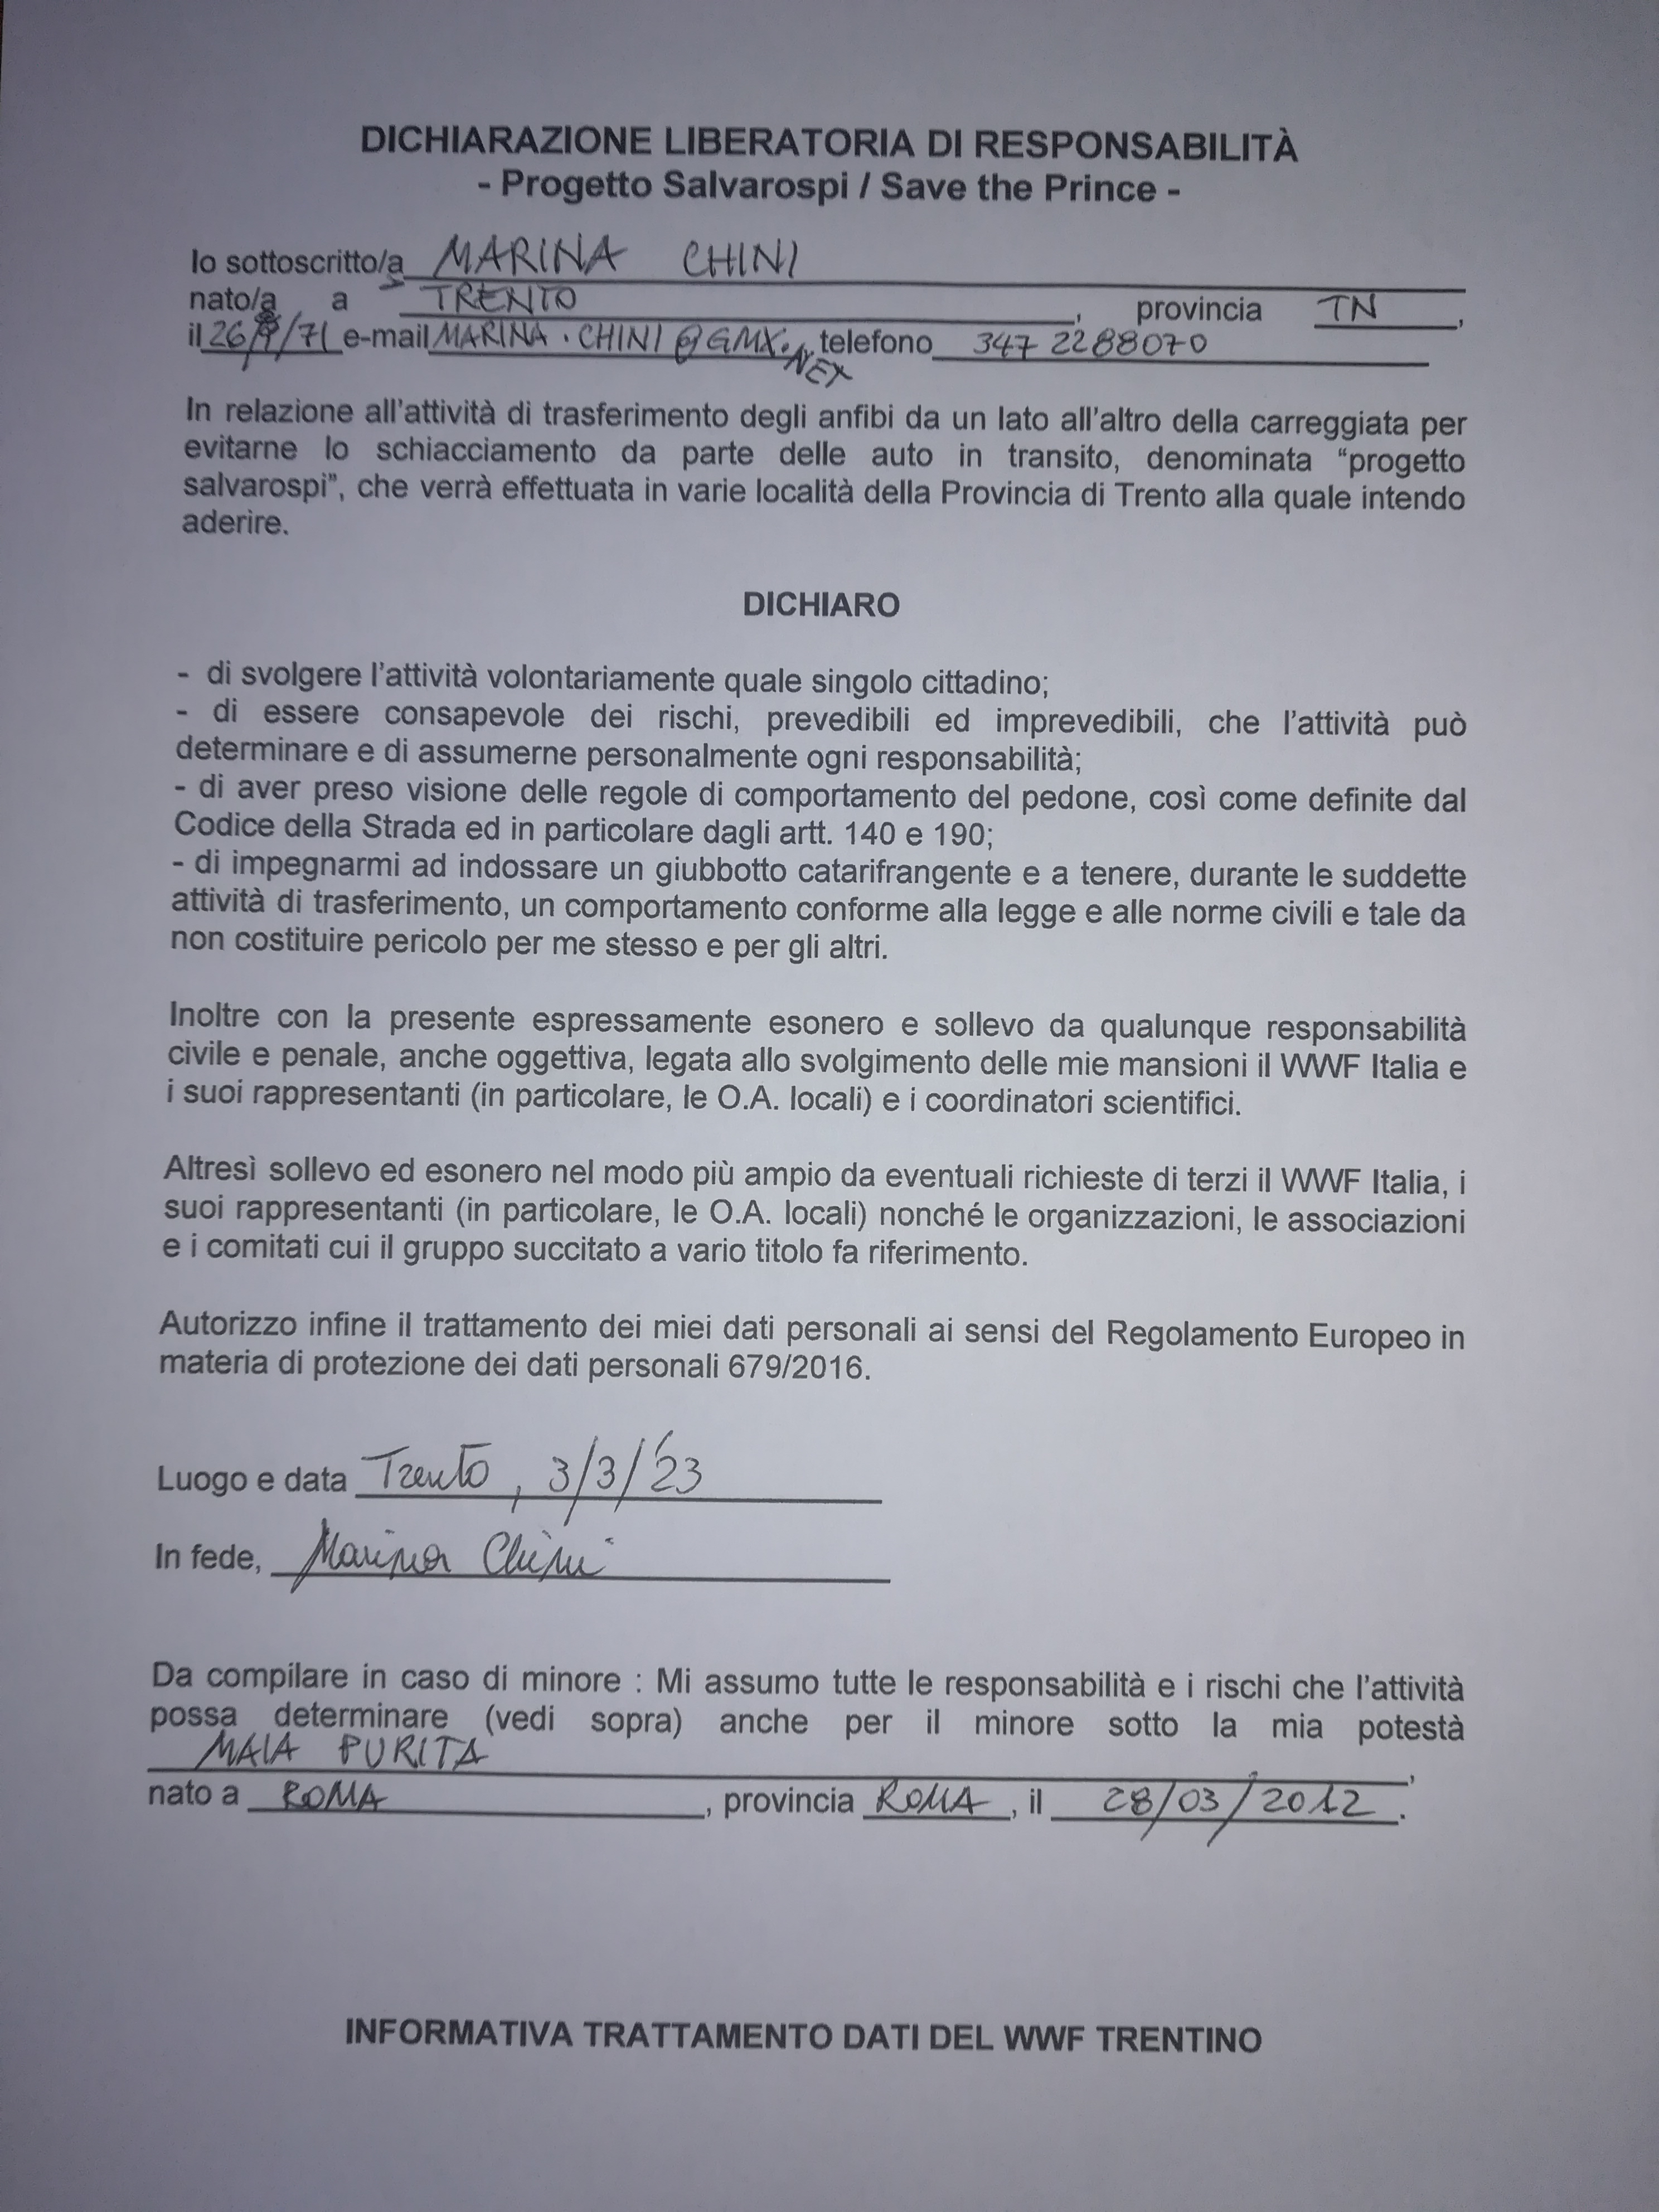 DICHIARAZIONE LIBERATORIA DI RESPONSABILITÀ
- Progetto Salvarospi / Save the Prince -
Io sottoscritto/a MARINA CHINI
nato/a a TRENTO, provincia TN,
il 26/ /71 e-mail MARINA.CHINI@GMX.NET telefono 347 2288070
In relazione all'attività di trasferimento degli anfibi da un lato all'altro della carreggiata per
evitarne lo schiacciamento da parte delle auto in transito, denominata “progetto
salvarospi”, che verrà effettuata in varie località della Provincia di Trento alla quale intendo
aderire.
DICHIARO
- di svolgere l'attività volontariamente quale singolo cittadino;
- di essere consapevole dei rischi, prevedibili ed imprevedibili, che l'attività può
determinare e di assumerne personalmente ogni responsabilità;
- di aver preso visione delle regole di comportamento del pedone, così come definite dal
Codice della Strada ed in particolare dagli artt. 140 e 190;
- di impegnarmi ad indossare un giubbotto catarifrangente e a tenere, durante le suddette
attività di trasferimento, un comportamento conforme alla legge e alle norme civili e tale da
non costituire pericolo per me stesso e per gli altri.
Inoltre con la presente espressamente esonero e sollevo da qualunque responsabilità
civile e penale, anche oggettiva, legata allo svolgimento delle mie mansioni il WWF Italia e
i suoi rappresentanti (in particolare, le O.A. locali) e i coordinatori scientifici.
Altresì sollevo ed esonero nel modo più ampio da eventuali richieste di terzi il WWF Italia, i
suoi rappresentanti (in particolare, le O.A. locali) nonché le organizzazioni, le associazioni
e i comitati cui il gruppo succitato a vario titolo fa riferimento.
Autorizzo infine il trattamento dei miei dati personali ai sensi del Regolamento Europeo in
materia di protezione dei dati personali 679/2016.
Luogo e data Trento, 3/3/'23
In fede, Marina Chini
Da compilare in caso di minore : Mi assumo tutte le responsabilità e i rischi che l'attività
possa determinare (vedi sopra) anche per il minore sotto la mia potestà
MAIA PURITA,
nato a ROMA, provincia ROMA, il 28/03/2012.
INFORMATIVA TRATTAMENTO DATI DEL WWF TRENTINO